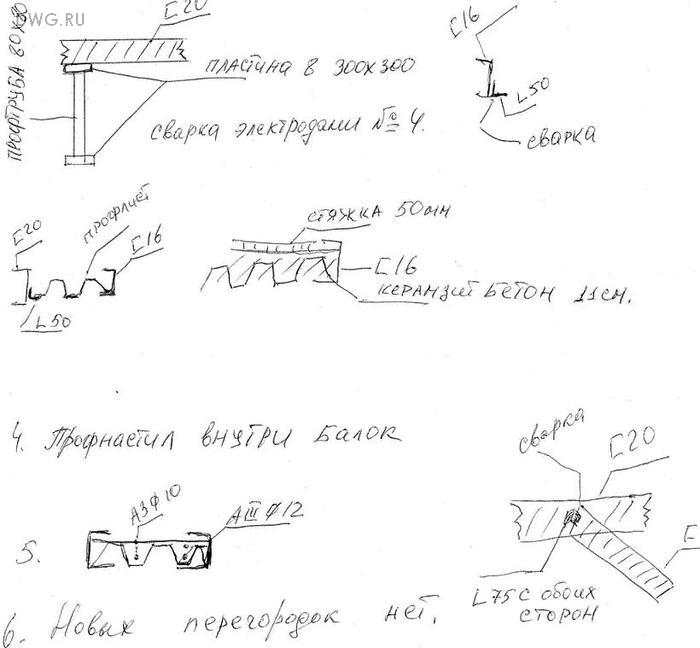 DWG.RU
[20
ПРОФТРУБА 80х80
ПЛАСТИНА 8 300х300
СВАРКА ЭЛЕКТРОДАМИ № 4.
[16
L50
СВАРКА
[20
ПРОФЛИСТ
[16
L50
СТЯЖКА 50мм
[16
КЕРАМЗИТБЕТОН 11см.
4. Профнастил внутри балок
5.
А3Ф10
АIIIФ12
сварка
[20
L75 с обоих
сторон
6. Новых перегородок нет.